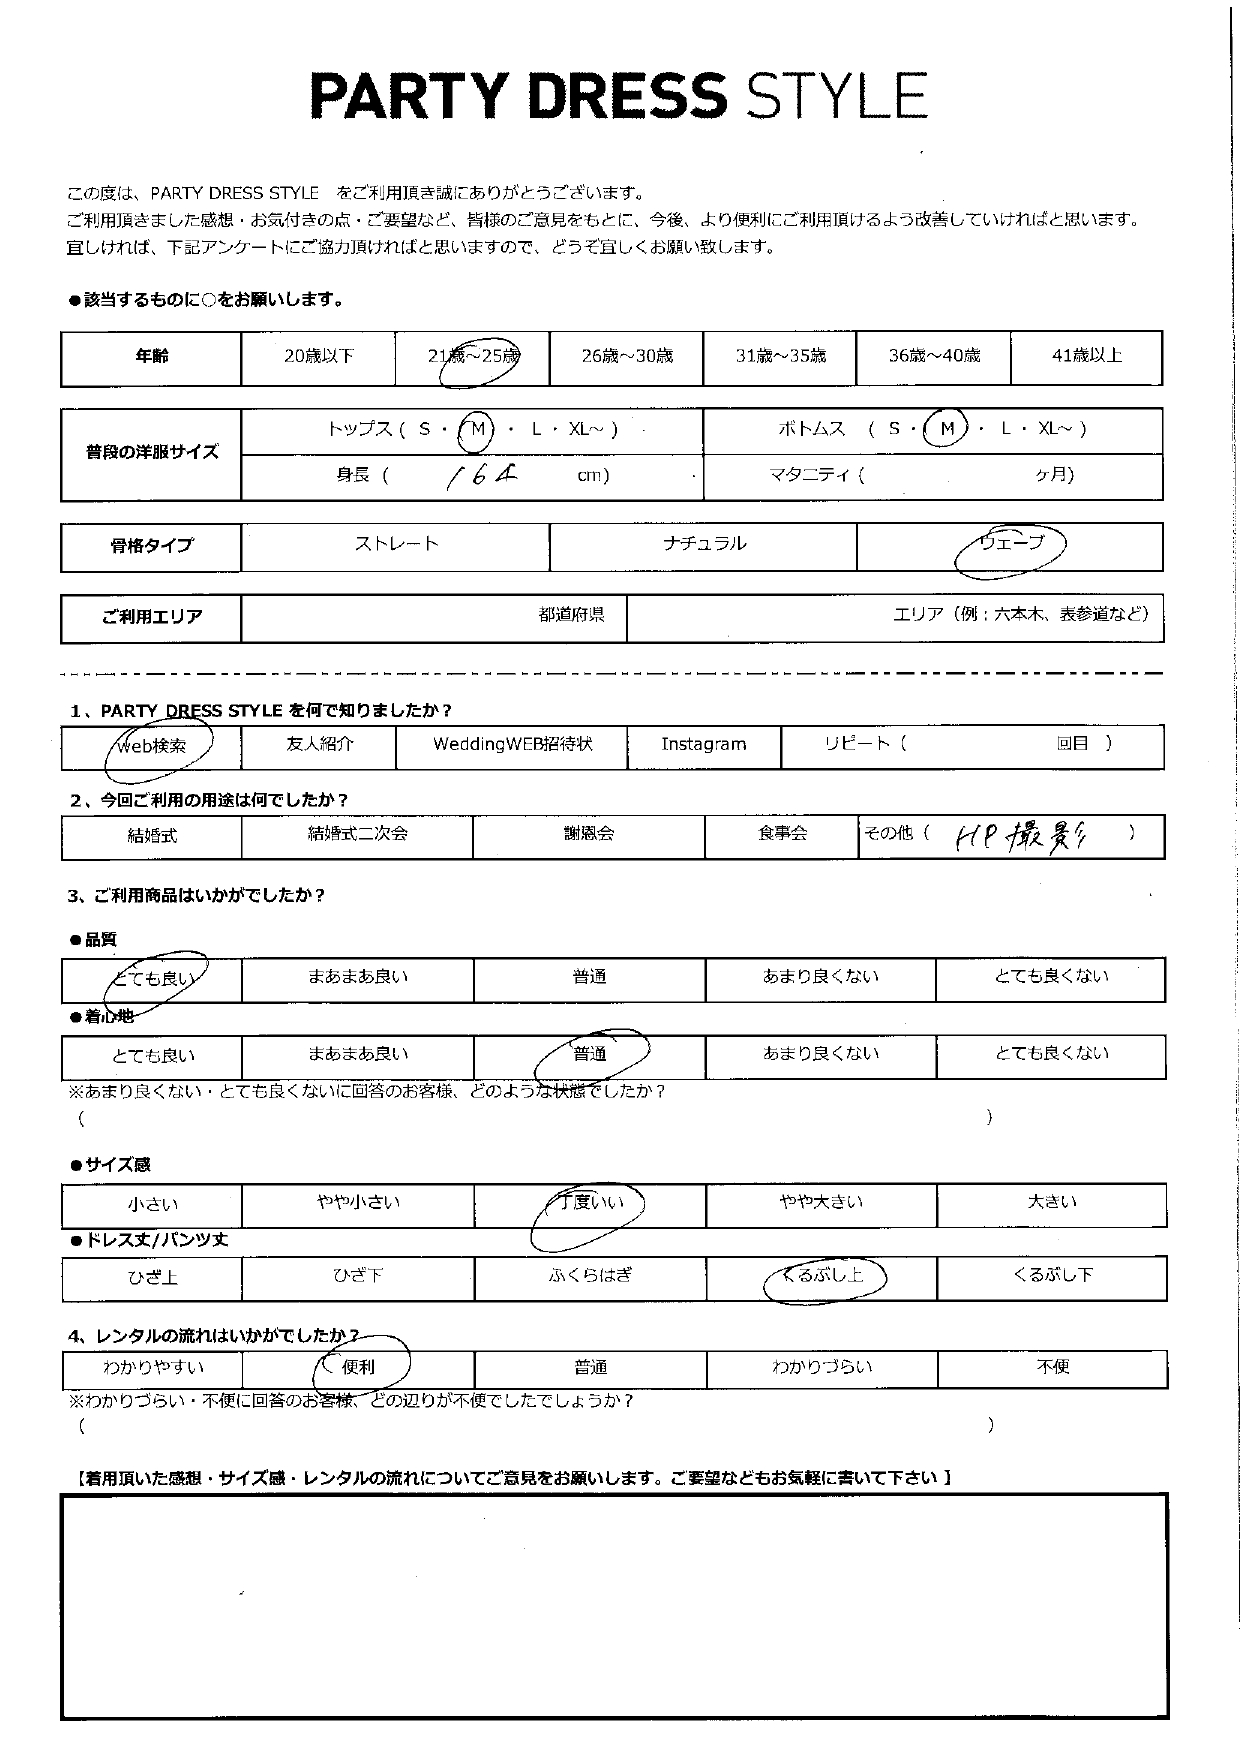 PARTY DRESS STYLE
この度は、PARTY DRESS STYLE をご利用頂き誠にありがとうございます。
ご利用頂きました感想・お気付きの点・ご要望など、皆様のご意見をもとに、今後、より便利にご利用頂けるよう改善していければと思います。
宜しければ、下記アンケートにご協力頂ければと思いますので、どうぞ宜しくお願い致します。
●該当するものに○をお願いします。
年齢 20歳以下 21歳～25歳 26歳～30歳 31歳～35歳 36歳～40歳 41歳以上
普段の洋服サイズ トップス ( S ・ M ・ L ・ XL～ ) ボトムス ( S ・ M ・ L ・ XL～ )
身長 ( 164 cm) マタニティ ( ヶ月)
骨格タイプ ストレート ナチュラル ウェーブ
ご利用エリア 都道府県 エリア（例：六本木、表参道など）
1、PARTY DRESS STYLE を何で知りましたか？
Web検索 友人紹介 WeddingWEB招待状 Instagram リピート ( 回目 )
2、今回ご利用の用途は何でしたか？
結婚式 結婚式二次会 謝恩会 食事会 その他 ( HP撮影 )
3、ご利用商品はいかがでしたか？
●品質
とても良い まあまあ良い 普通 あまり良くない とても良くない
●着心地
とても良い まあまあ良い 普通 あまり良くない とても良くない
※あまり良くない・とても良くないに回答のお客様、どのような状態でしたか？
( )
●サイズ感
小さい やや小さい 丁度いい やや大きい 大きい
●ドレス丈/パンツ丈
ひざ上 ひざ下 ふくらはぎ くるぶし上 くるぶし下
4、レンタルの流れはいかがでしたか？
わかりやすい 便利 普通 わかりづらい 不便
※わかりづらい・不便に回答のお客様、どの辺りが不便でしたでしょうか？
( )
【着用頂いた感想・サイズ感・レンタルの流れについてご意見をお願いします。ご要望などもお気軽に書いて下さい 】